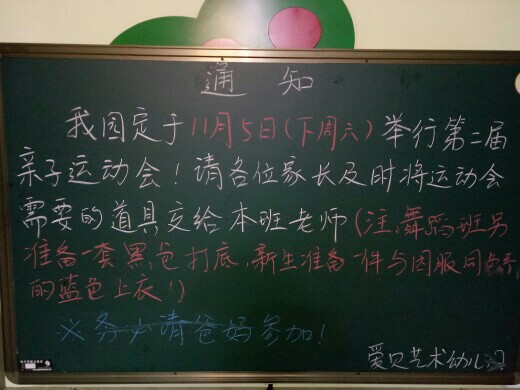 通 知
我园定于11月5日(下周六)举行第二届
亲子运动会!请各位家长及时将运动会
需要的道具交给本班老师(注:舞蹈班另
准备一套黑色打底,新生准备一件与园服同色系
的蓝色上衣!)
※务必请爸妈参加!
爱贝艺术幼儿园